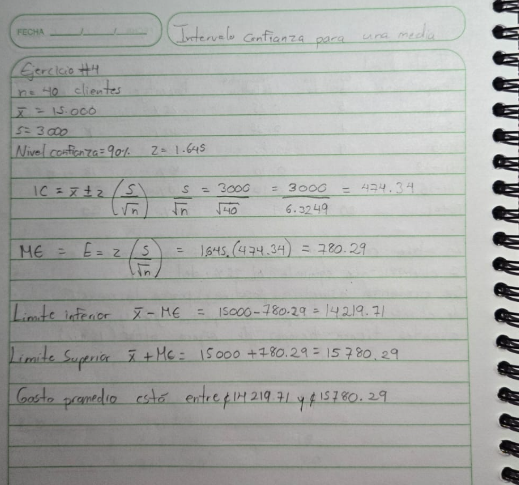 FECHA
Intervalo Confianza para una media
Ejercicio #4
n= 40 clientes
x̄ = 15.000
s= 3000
Nivel confianza=90% Z= 1.645
IC = x̄ ± z (S/√n) S/√n = 3000/√40 = 3000/6.3249 = 474.34
ME = E= z (S/√n) = 1.645.(474.34) = 780.29
Limite inferior x̄ - ME = 15000-780.29=14219.71
Limite Superior x̄ + ME= 15000+780.29=15780.29
Gasto promedio está entre ¢14219.71 y ¢15780.29